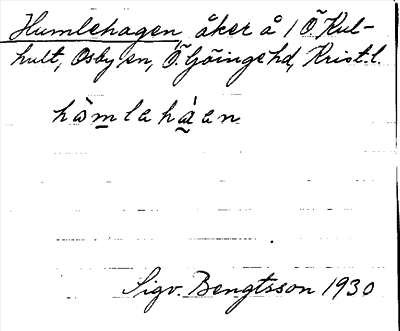 Humlehagen, åker å 1 Ö. Kul-
hult, Osby sn, Ö. Göinge hd, Krist. l.
hòmlehàen
Sigv. Bengtsson 1930